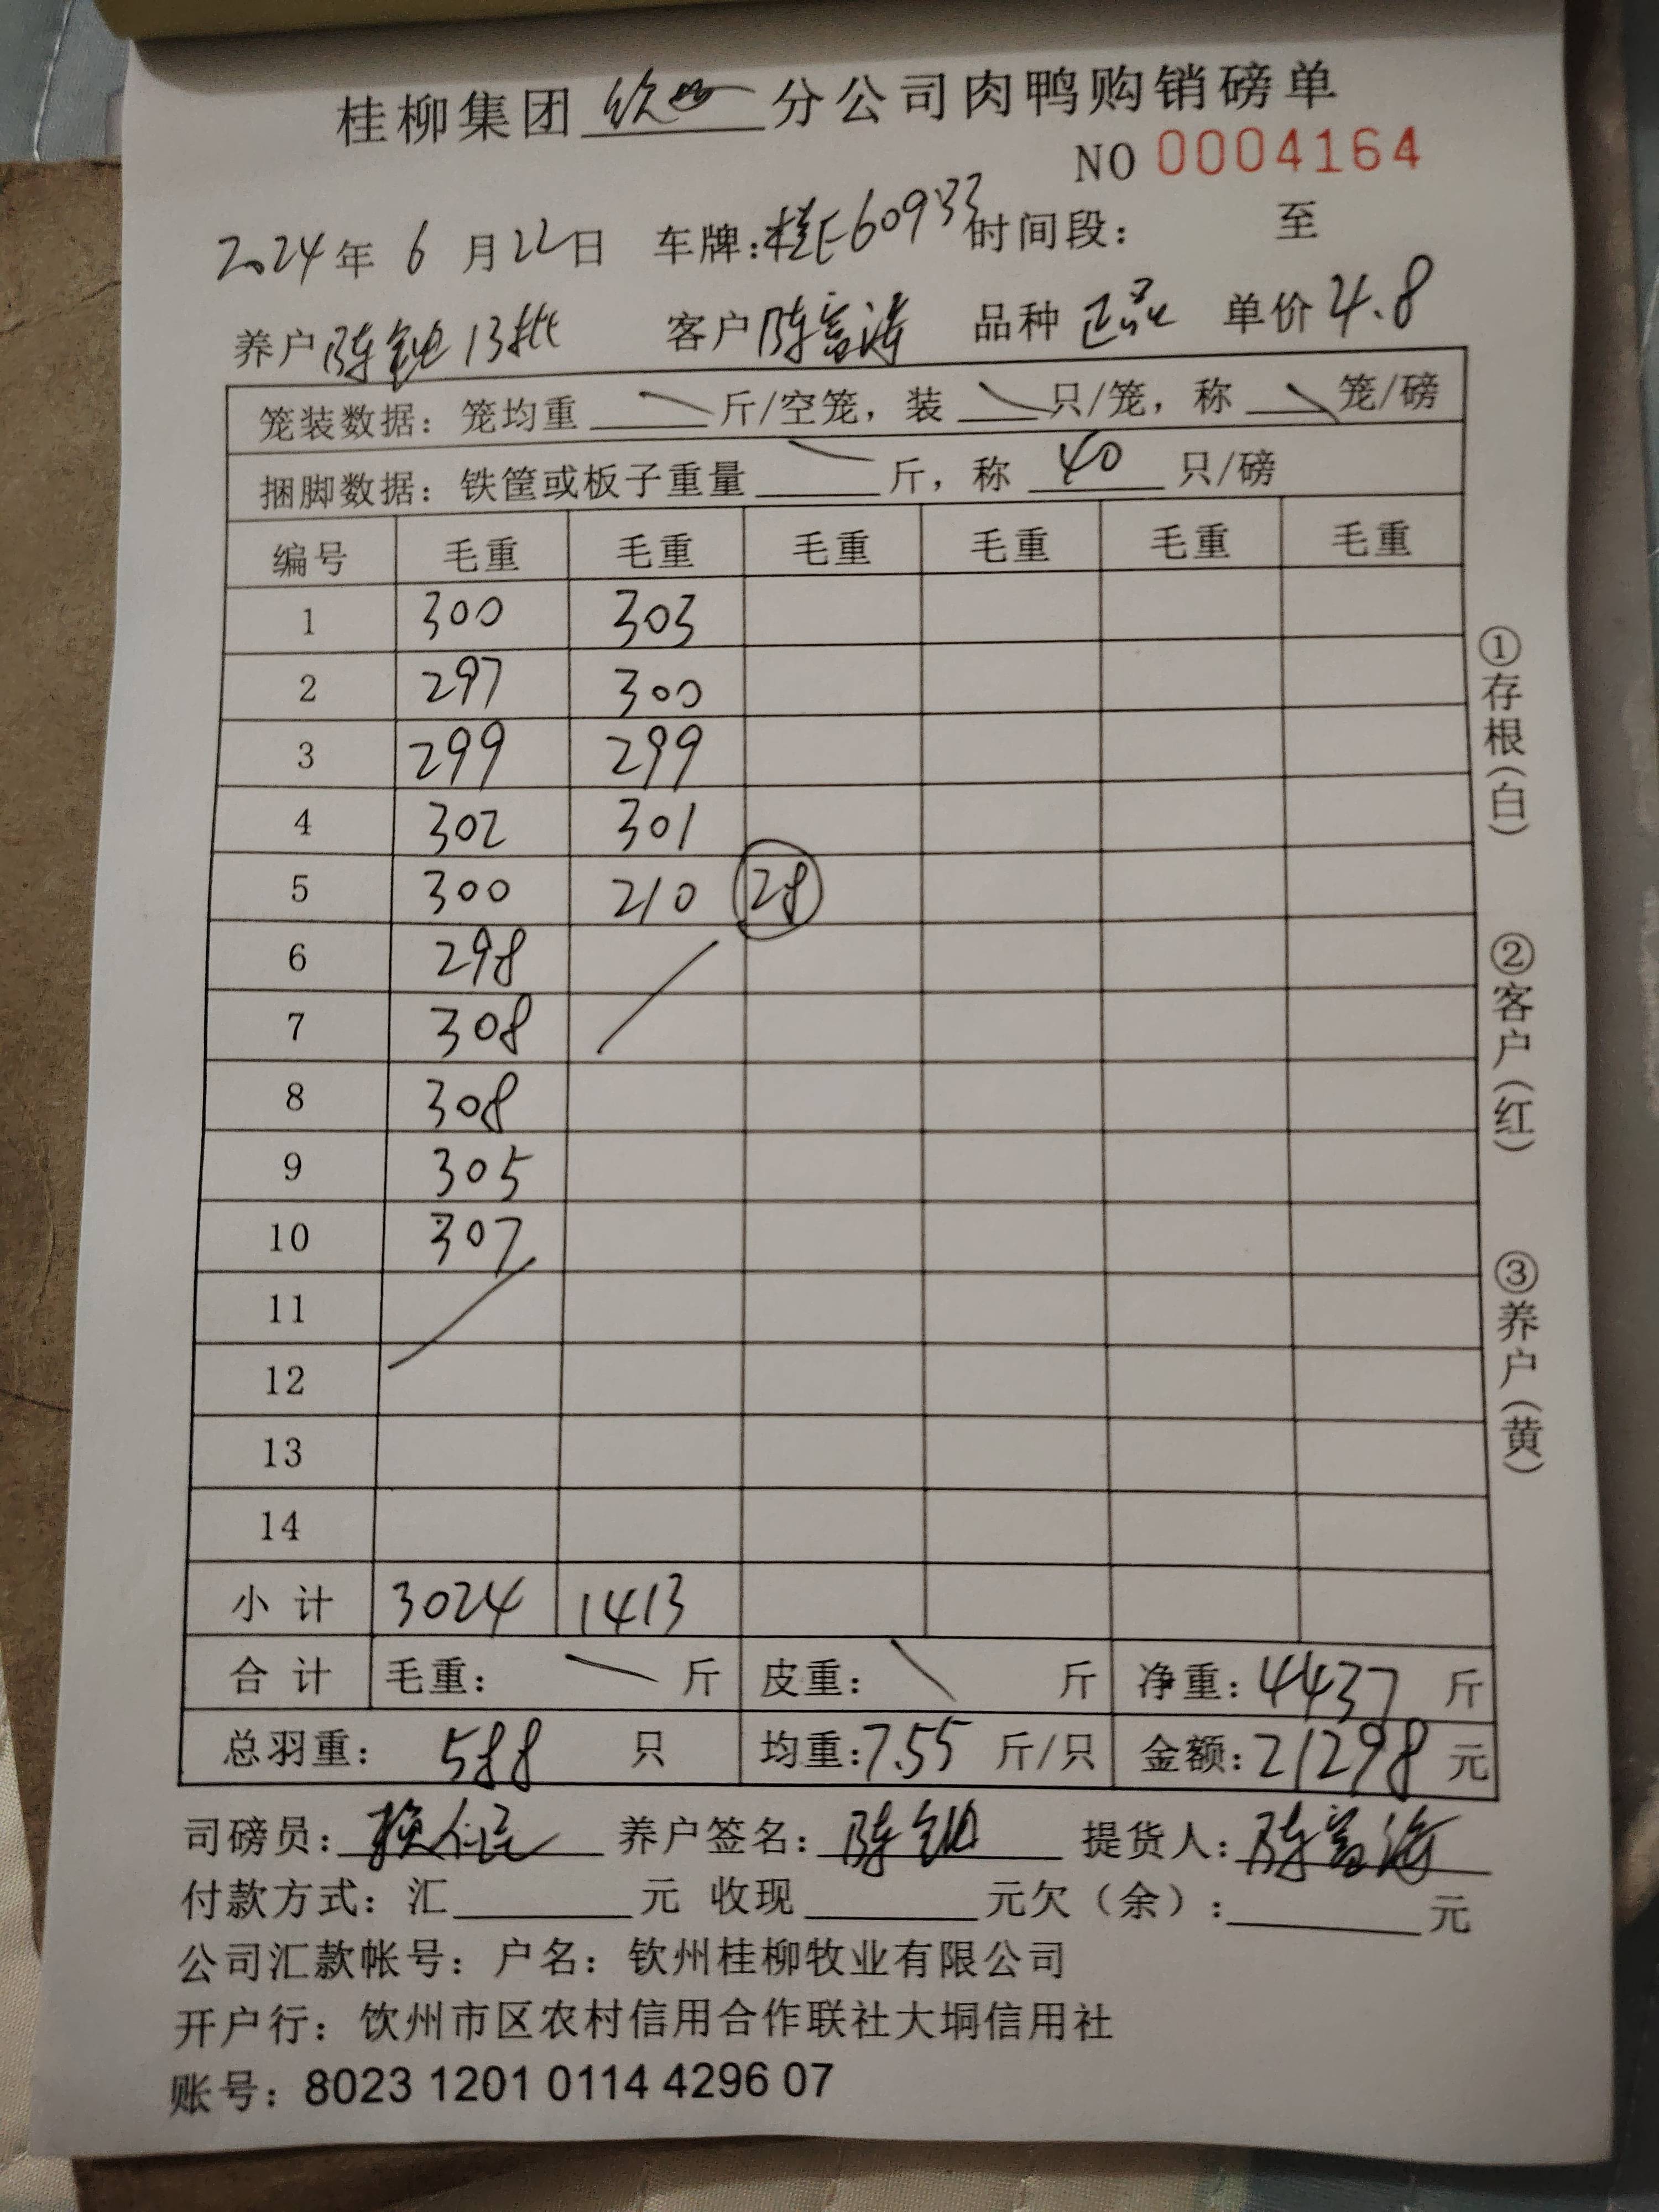 桂柳集团 钦州 分公司肉鸭购销磅单
NO 0004164
2024年 6 月 22 日 车牌:桂E60933 时间段: 至
养户 陈 13批 客户 陈富海 品种 正品 单价 4.8
笼装数据: 笼均重 斤/空笼, 装 只/笼, 称 笼/磅
捆脚数据: 铁筐或板子重量 斤, 称 40 只/磅
编号 毛重 毛重 毛重 毛重 毛重 毛重
1 300 303
2 297 300
3 299 299
4 302 301
5 300 210 28
6 298
7 308
8 308
9 305
10 307
11
12
13
14
小计 3024 1413
合计 毛重: 斤 皮重: 斤 净重: 4437 斤
总羽重: 588 只 均重: 7.55 斤/只 金额: 21298 元
司磅员: 养户签名: 陈 提货人: 陈富海
付款方式: 汇 元 收现 元欠(余): 元
公司汇款帐号: 户名: 钦州桂柳牧业有限公司
开户行: 钦州市区农村信用合作联社大垌信用社
账号: 8023 1201 0114 4296 07
①存根(白)
②客户(红)
③养户(黄)